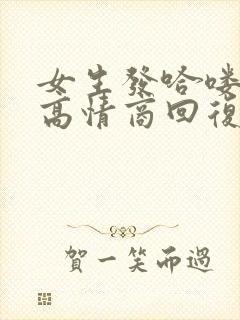 女生發哈嘍
高情商回復
賀一笑而過